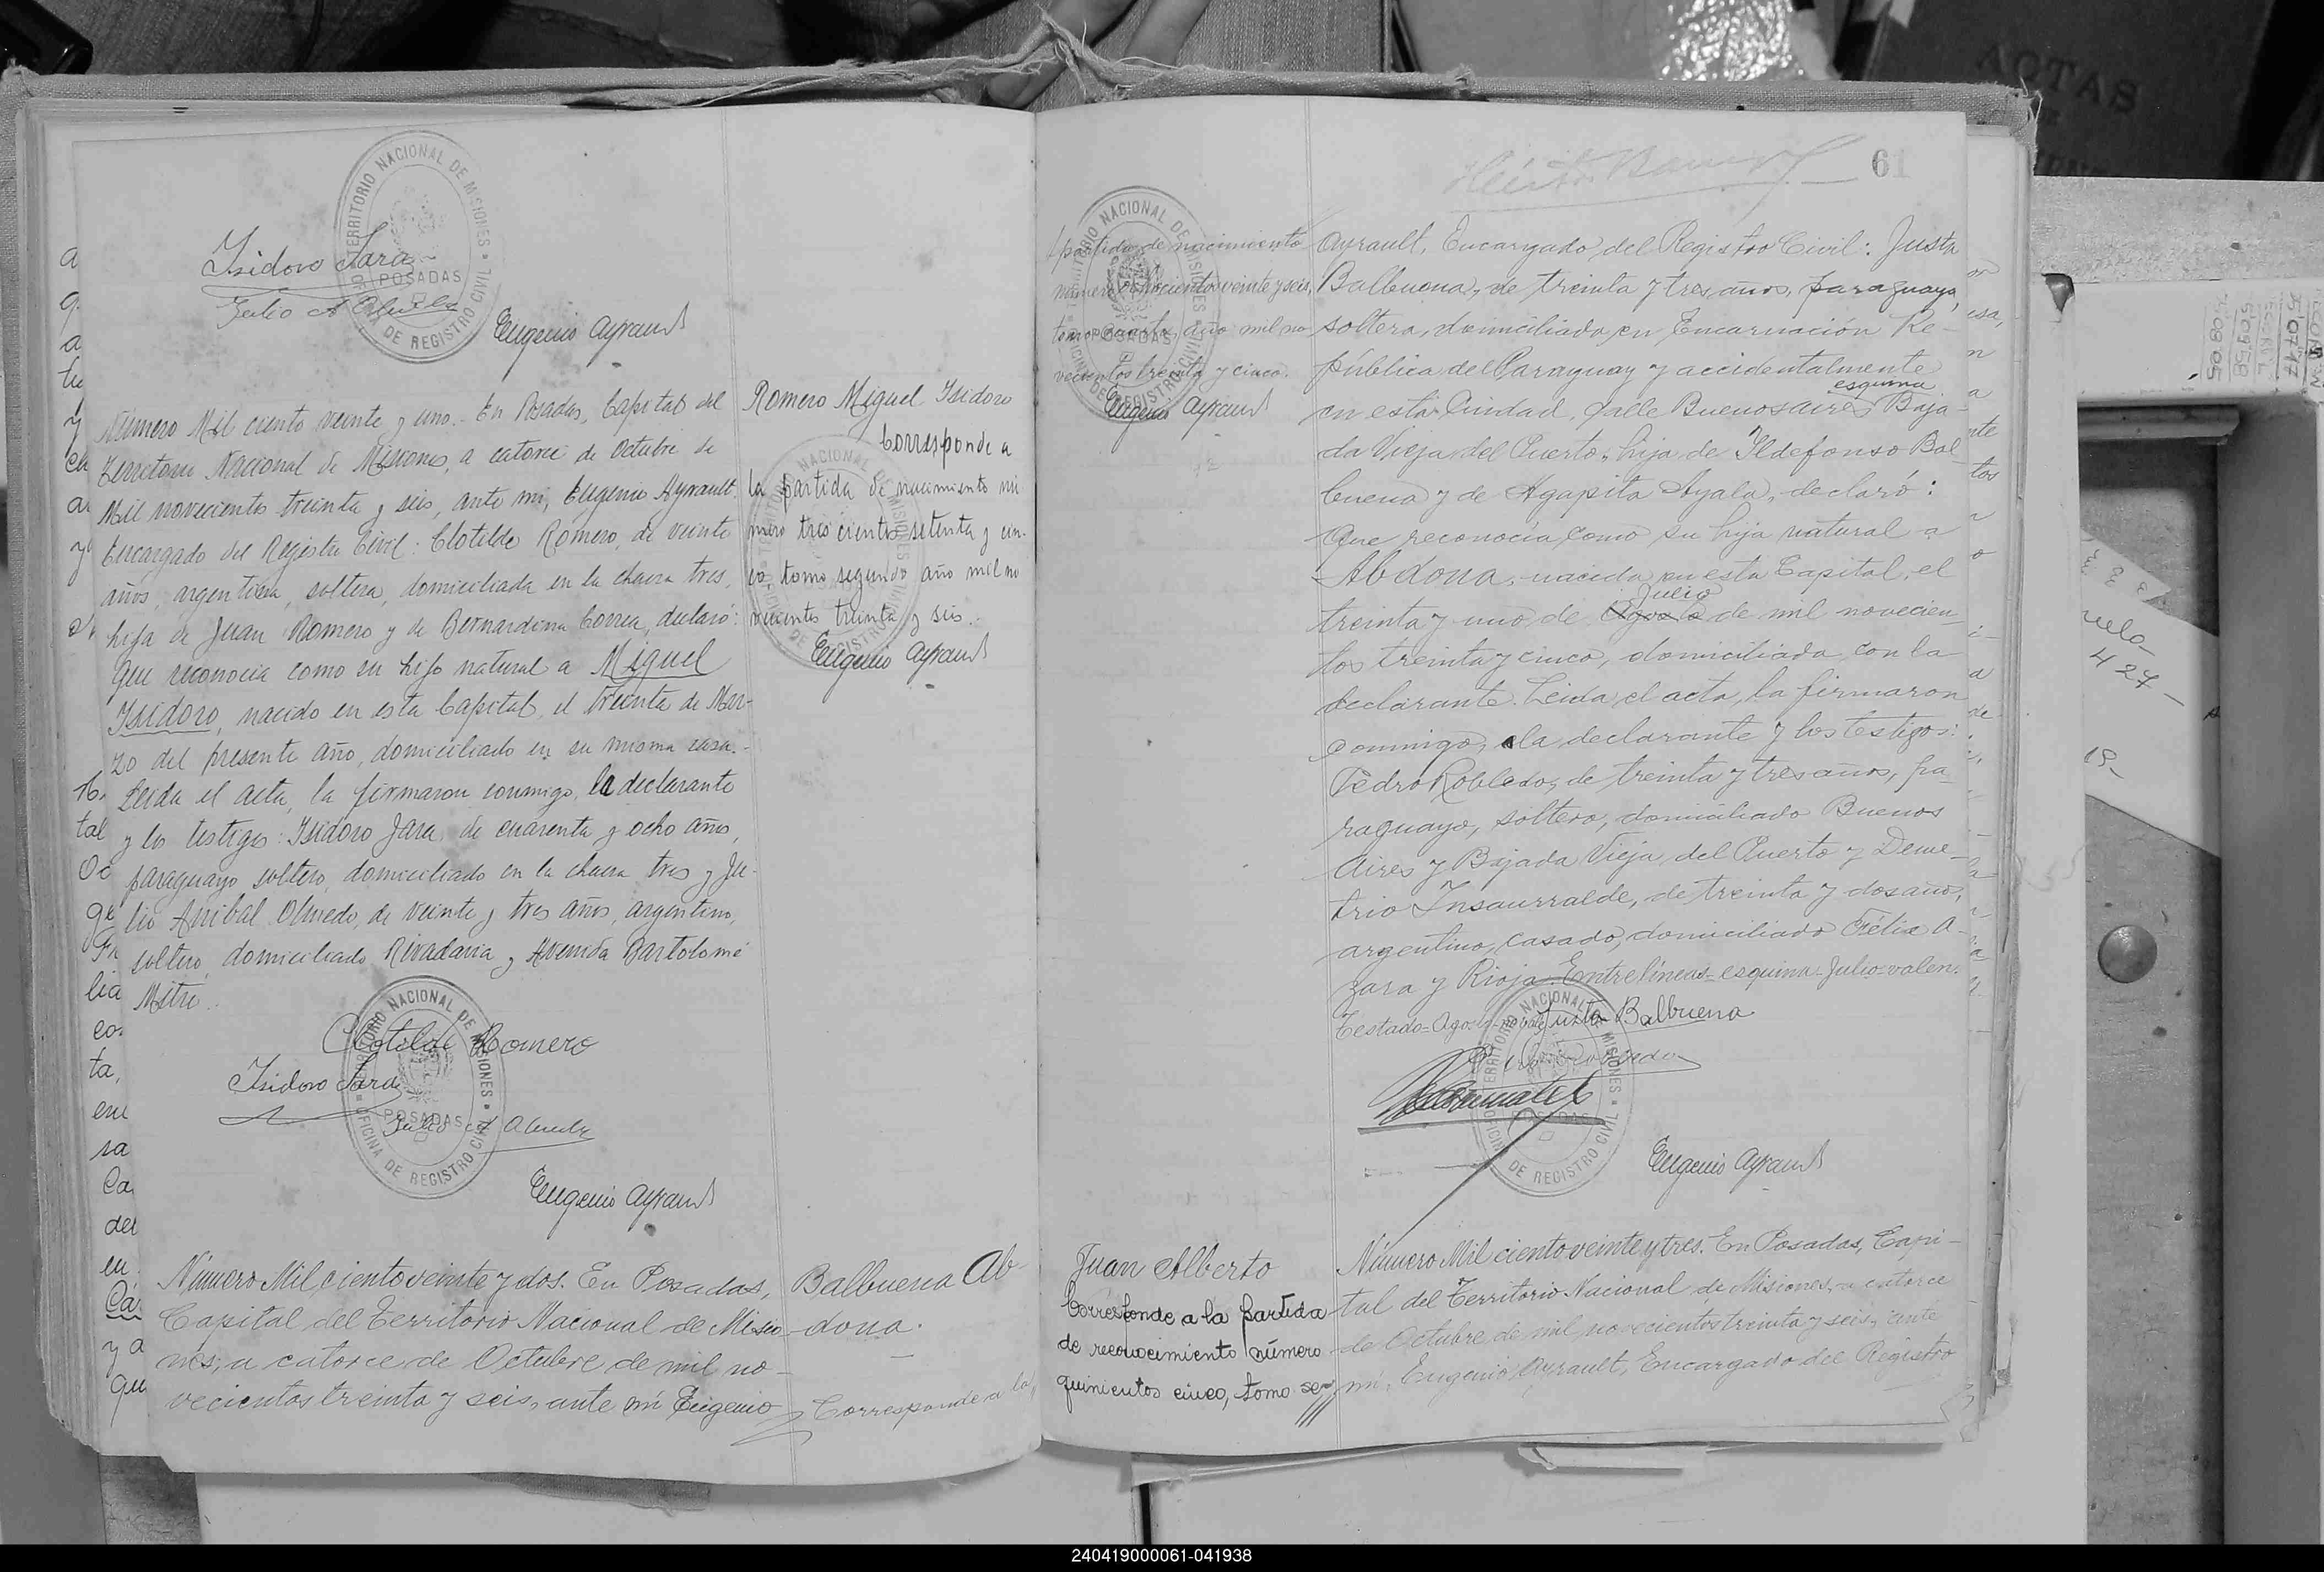 Isidoro Jara
Julio A Olmedo
Eugenio Ayrault
Número Mil ciento veinte y uno.- En Posadas, Capital del
Territorio Nacional de Misiones, a catorce de Octubre de
Mil novecientos treinta y seis, ante mi, Eugenio Ayrault.
Encargado del Registro Civil: Clotilde Romero, de veinte
años, argentina, soltera, domiciliada en la chacra tres,
hija de Juan Romero y de Bernardina Correa, declaró:
Que reconocia como su hijo natural a Miguel
Isidoro, nacido en esta Capital, el treinta de Mar-
zo del presente año, domiciliado en su misma casa.-
Leida el acta, la firmaron conmigo, la declarante
y los testigos: Isidoro Jara, de cuarenta y ocho años,
paraguayo, soltero, domiciliado en la chacra tres y Ju-
lio Anibal Olmedo, de veinte y tres años, argentino,
soltero, domiciliado Rivadavia y Avenida Bartolomé
Mitre.
Romero Miguel Isidoro
Corresponde a
la partida de nacimiento nú
mero tres cientos setenta y cin-
co, tomo segundo año mil no
vecientos treinta y seis.-
Eugenio Ayrault
Clotilde Romero
Isidoro Jara
Julio A Olmedo
Eugenio Ayrault
Número Mil ciento veinte y dos. En Posadas,
Capital del Territorio Nacional de Misio-
nes, a catorce de Octubre de mil no-
vecientos treinta y seis, ante mí Eugenio
Balbuena Ab-
dona.
Corresponde a la
61
partida de nacimiento
número ochocientos veinte y seis,
tomo cuarto, año mil no
vecientos treinta y cinco.
Eugenio Ayrault
Ayrault, Encargado del Registro Civil: Justa
Balbuena, de treinta y tres años, paraguaya,
soltera, domiciliada en Encarnación Re-
pública del Paraguay y accidentalmente
esquina
en esta Ciudad, calle Buenos aires Baja-
da Vieja del Puerto, hija de Ildefonso Bal
buena y de Agapita Ayala, declaró:
Que reconocía como su hija natural a
Abdona, nacida en esta Capital, el
Julio
treinta y uno de Agosto de mil novecien
tos treinta y cinco, domiciliada con la
declarante. Leida el acta, la firmaron
conmigo, la declarante y los testigos:
Pedro Robledo, de treinta y tres años, pa
raguayo, soltero, domiciliado Buenos
Aires y Bajada Vieja del Puerto y Deme-
trio Insaurralde, de treinta y dos años,
argentino, casado, domiciliado Félix A-
zara y Rioja. Entrelíneas=esquina=Julio=valen.
Testado=Agosto=no vale
Justa Balbuena
Eugenio Ayrault
Juan Alberto
Corresponde a la partida
de reconocimiento número
quinientos cinco, tomo se-
Número Mil ciento veinte y tres. En Posadas, Capi-
tal del Territorio Nacional de Misiones, a catorce
de Octubre de mil novecientos treinta y seis, ante
mí, Eugenio Ayrault, Encargado del Registro
TERRITORIO NACIONAL DE MISIONES
POSADAS
OFICINA DE REGISTRO CIVIL
ACTAS
427
240419000061-041938